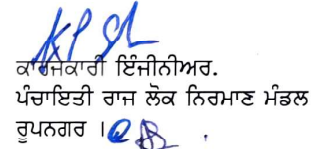 ਕਾਰਜਕਾਰੀ ਇੰਜੀਨੀਅਰ.
ਪੰਚਾਇਤੀ ਰਾਜ ਲੋਕ ਨਿਰਮਾਣ ਮੰਡਲ
ਰੂਪਨਗਰ ।